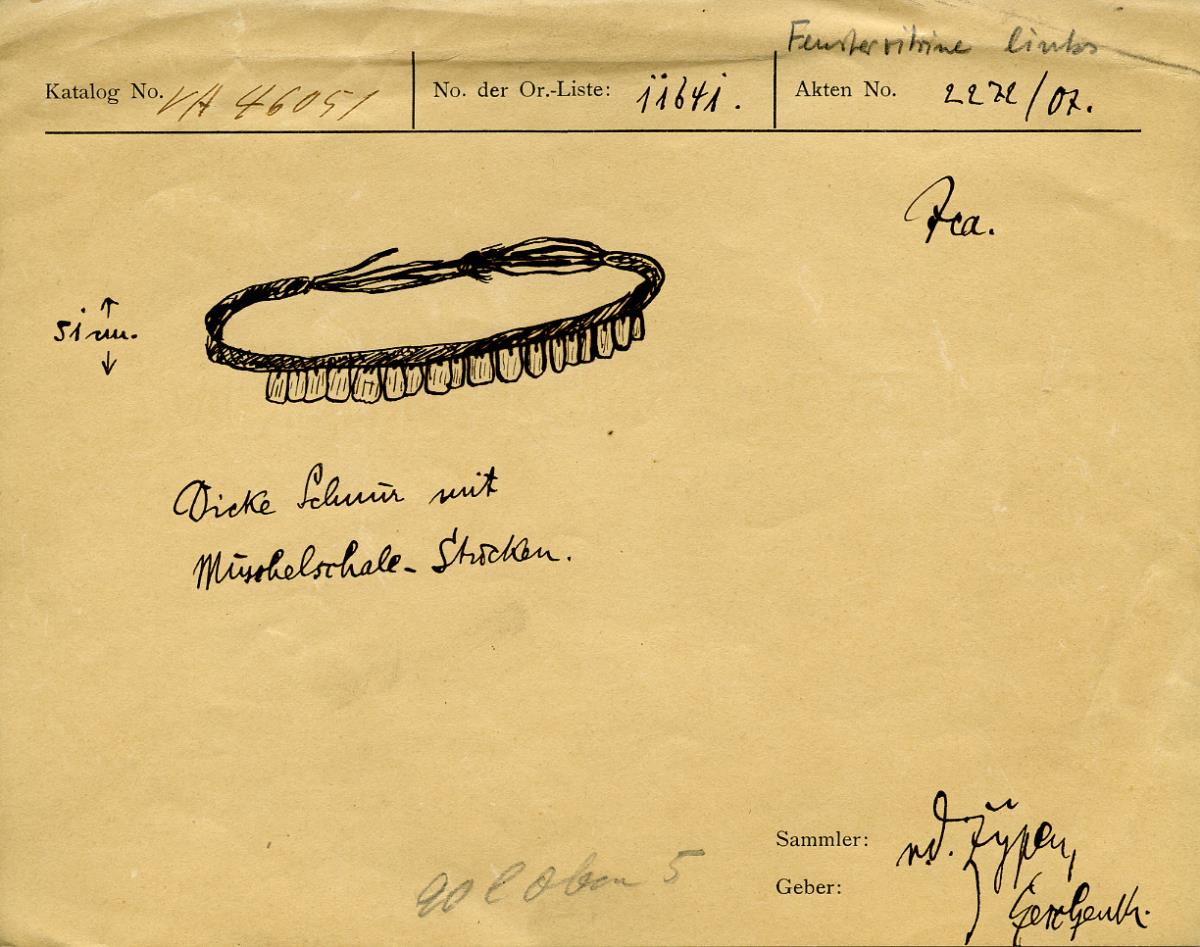 Fenstervitrine links
Katalog No. VA 46051
No. der Or.-Liste: 11641.
Akten No. 2272/07.
Ica.
51 mm.
Dicke Schnur mit
Muschelschale-Stücken.
Sammler: v.d. Zypen,
Geber: Geschenk.
90 l Oben 5